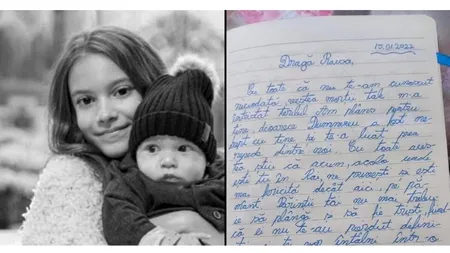 10.01.2022
Dragă Rucca,
Cu toate că nu te-am cunoscut
niciodată, vestea morții tale m-a
întristat teribil. Am plâns pentru
tine, deoarece Dumnezeu a fost ne-
drept cu tine și te-a luat prea
repede dintre noi. Cu toate aces-
tea, știu că acum, acolo unde
ești tu în Rai, ne privești și ești
mai fericită decât aici pe pă-
mânt. Părinții tăi nu mai trebu-
ie să plângă și să fie triști, fiind-
că ei nu te-au pierdut defini-
te vor întâlni într-o